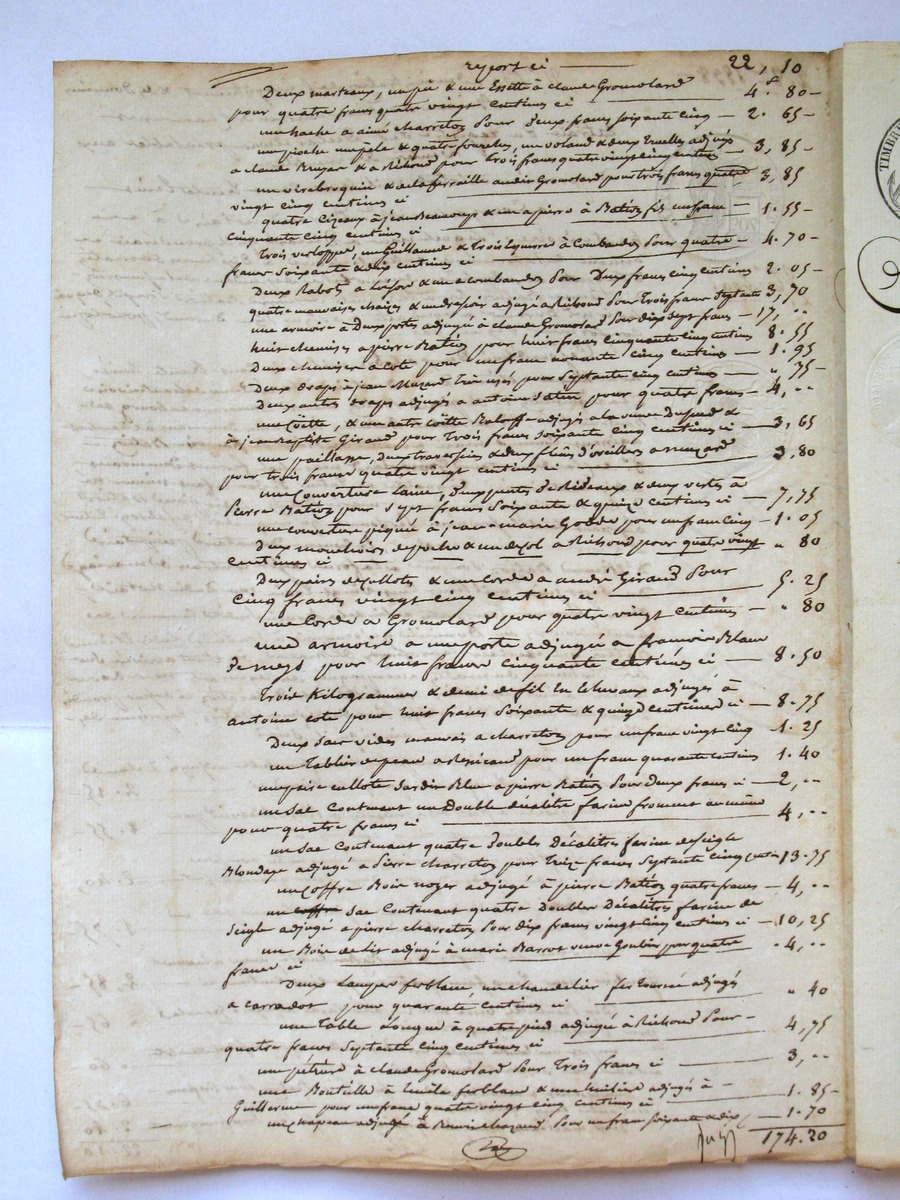 report ci — 22, 10
Deux marteaux, un pic & une Essette à claude Gromolard
pour quatre francs quatre vingt centimes ci — 4f. 80 —
une hache a aimé charreton pour deux francs soixante cinq — 2. 65 —
une pioche une pele & quatre un voland & deux truelles adjugés
a claude & a Richoud pour trois francs quatre vingt cinq centimes — 3, 85 —
un virebroquin & de la ferraille audit Gromolard pour trois francs quatre
vingt cinq centimes ci — 3, 85
quatre cizeaux à jean & un a pierre à Ration fils un franc —
cinquante cinq centimes ci — 1. 55 —
trois verloppes, un Guillaume & trois Equerre à Combaudon pour quatre —
francs soixante & dix centimes ci — 4. 70 —
Deux Rabots a & un a combaudon pour Deux francs cinq centimes 2. 05 —
quatre mauvaises chaizes & un dressoir adjugé a Richoud pour trois francs septante 3, 70
une armoire a Deux portes adjugé à claude Gromolard pour dix sept francs — 17, ..
huit chemises a pierre Ration pour huit francs cinquante cinq centimes 8. 55
Deux chemises a cote pour un franc nonante cinq centimes — 1. 95
Deux draps à jean Muzard très usés pour septante cinq centimes — ", 75 —
Deux autres draps adjugés a antoine Satin pour quatre francs — 4, ..
une Coëtte, & une autre Coëtte Baloffe adjugés a la veuve &
à jean Baptiste Giraud pour trois francs soixante cinq centimes ci — 3, 65
une paillasse, deux traversiers & deux d'oreillers a muzard
pour trois francs quatre vingt centimes ci — 3. 80
une couverture Laine, deux pentes de Rideaux & deux vestes à
Pierre Ration pour sept francs soixante & quinze centimes ci — 7, 75
une couverture piquée à jean-marie Godde pour un franc cinq — 1. 05
Deux mouchoirs de poche & un de col a Richoud pour quatre vingt
centimes ci — " 80
Deux paires de & une Corde a andré Giraud pour
cinq francs vingt cinq centimes ci — 5. 25
une Corde a Gromolard pour quatre vingt centimes — " 80
une armoire a une porte adjugé a francois Blanc
de pour huit francs cinquante centimes ci — 8. 50
Trois Kilogrammes & demi de fil En Echevaux adjugés à
antoine cote pour huit francs soixante & quinze centimes ci — 8. 75
Deux sacs vides mauvais a charreton pour un franc vingt cinq 1. 25
un Tablier de peau a pour un franc quarante centimes 1. 40
une paire cullotte Sardis Bleu a pierre Ration pour Deux francs ci — 2, ..
un Sac Contenant un Double décalitre farine froment au même
pour quatre francs ci — 4, ..
un Sac Contenant quatre Doubles Décalitres farine de seigle
Blondage adjugé a Pierre charreton pour treize francs septante cinq cent. 13. 75
un coffre Bois noyer adjugé à pierre Ration quatre francs — 4, ..
un coffre Sac Contenant quatre Doubles Décalitres farine de
seigle adjugé a pierre charreton pour dix francs vingt cinq centimes ci — 10, 25
un Bois de lit adjugé à marie Barrot veuve Goubin pour quatre
francs ci — 4, ..
Deux Lampes ferblanc un chandelier fer Tourné adjugés
a carradot pour quarante centimes ci — " 40
une Table Longue à quatre pied adjugé à Richoud pour —
quatre francs septante cinq centimes ci — 4, 75
un pétrin à claude Gromolard pour Trois francs ci — 3, ..
une Bouteille à l'huile ferblanc & une huilière adjugés à —
Guillerme pour un franc quatre vingt cinq centimes ci — 1. 85 —
un chapeau adjugé à Chazaud pour un franc soixante & dix — 1. 70
174. 20
TIMBRE